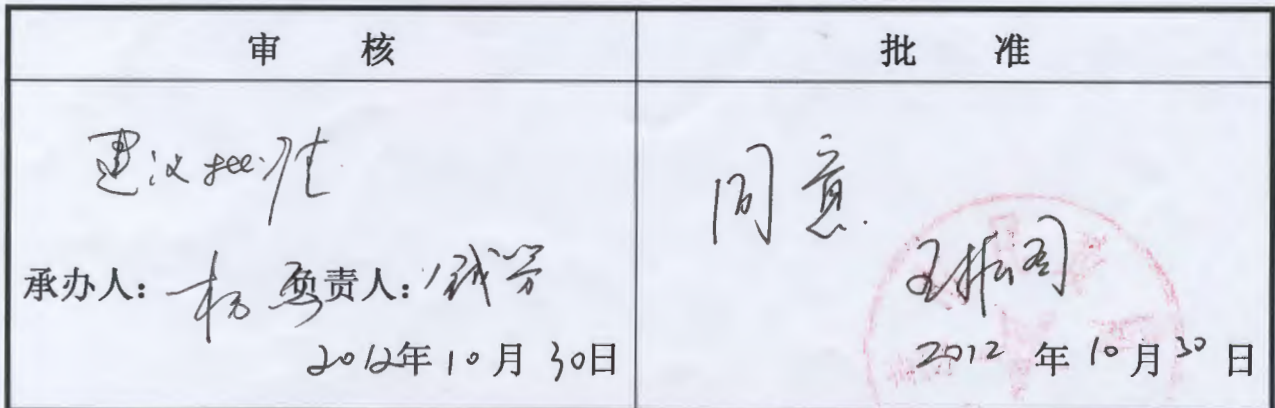 审 核
批 准
建议批准
承办人： 杨 负责人：
2012年10月30日
同意
2012年10月30日